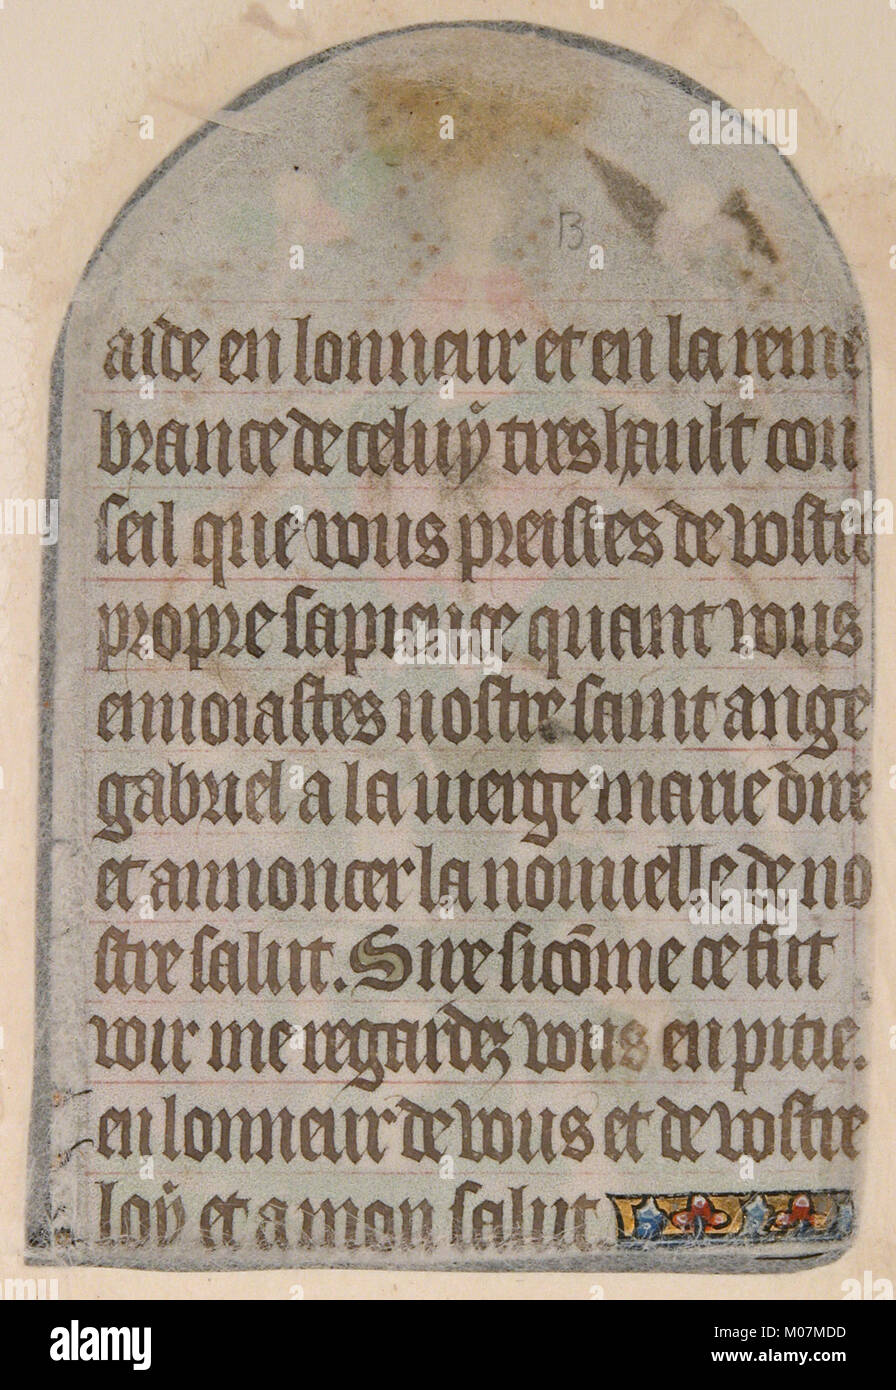 B
aide en lonneur et en la reme
brance de celuÿ tres hault con
seil que vous preistes de vostre
propre sapience quant vous
enuoiastes nostre saint ange
gabriel a la uierge marie dire
et annoncer la nouuelle de no
stre salut. Sire si cōme ce fut
voir me regardez vous en pitie.
en lonneur de vous et de vostre
loÿ et a mon salut.
alamy
Image ID: M07MDD
www.alamy.com